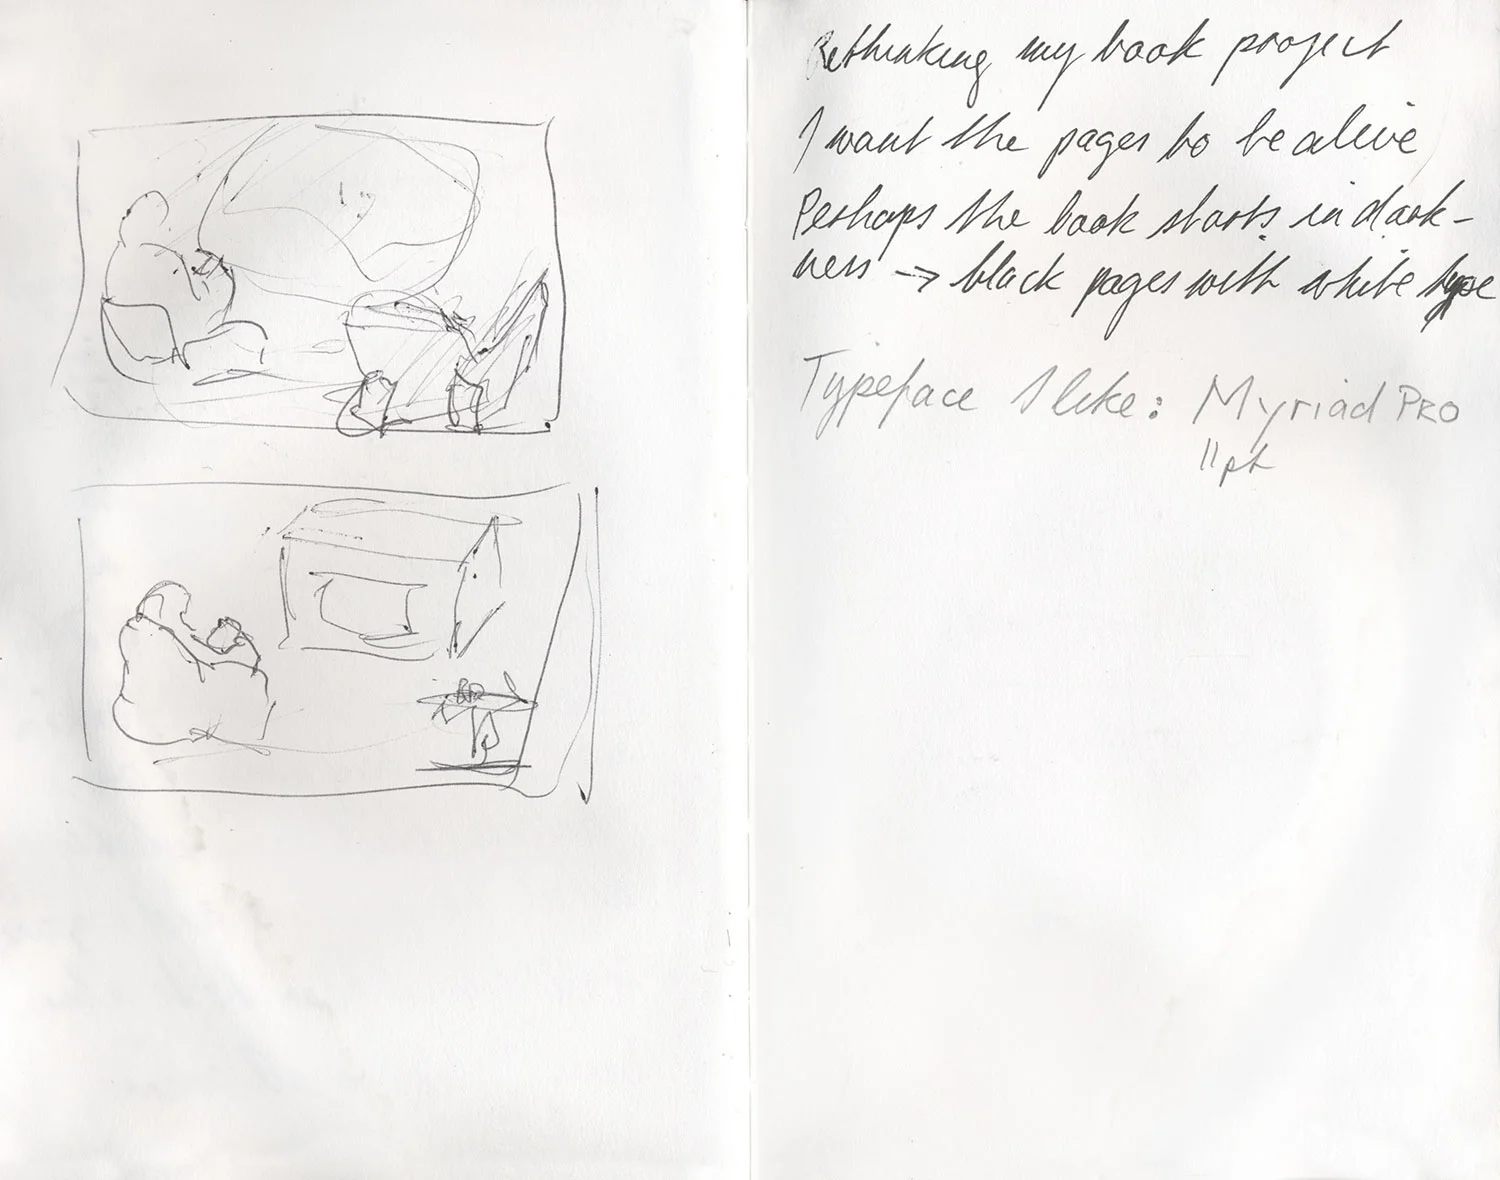 Rethinking my book project
I want the pages to be alive
Perhaps the book starts in dark-
ness → black pages with white type
Typeface I like: Myriad PRO
11pt